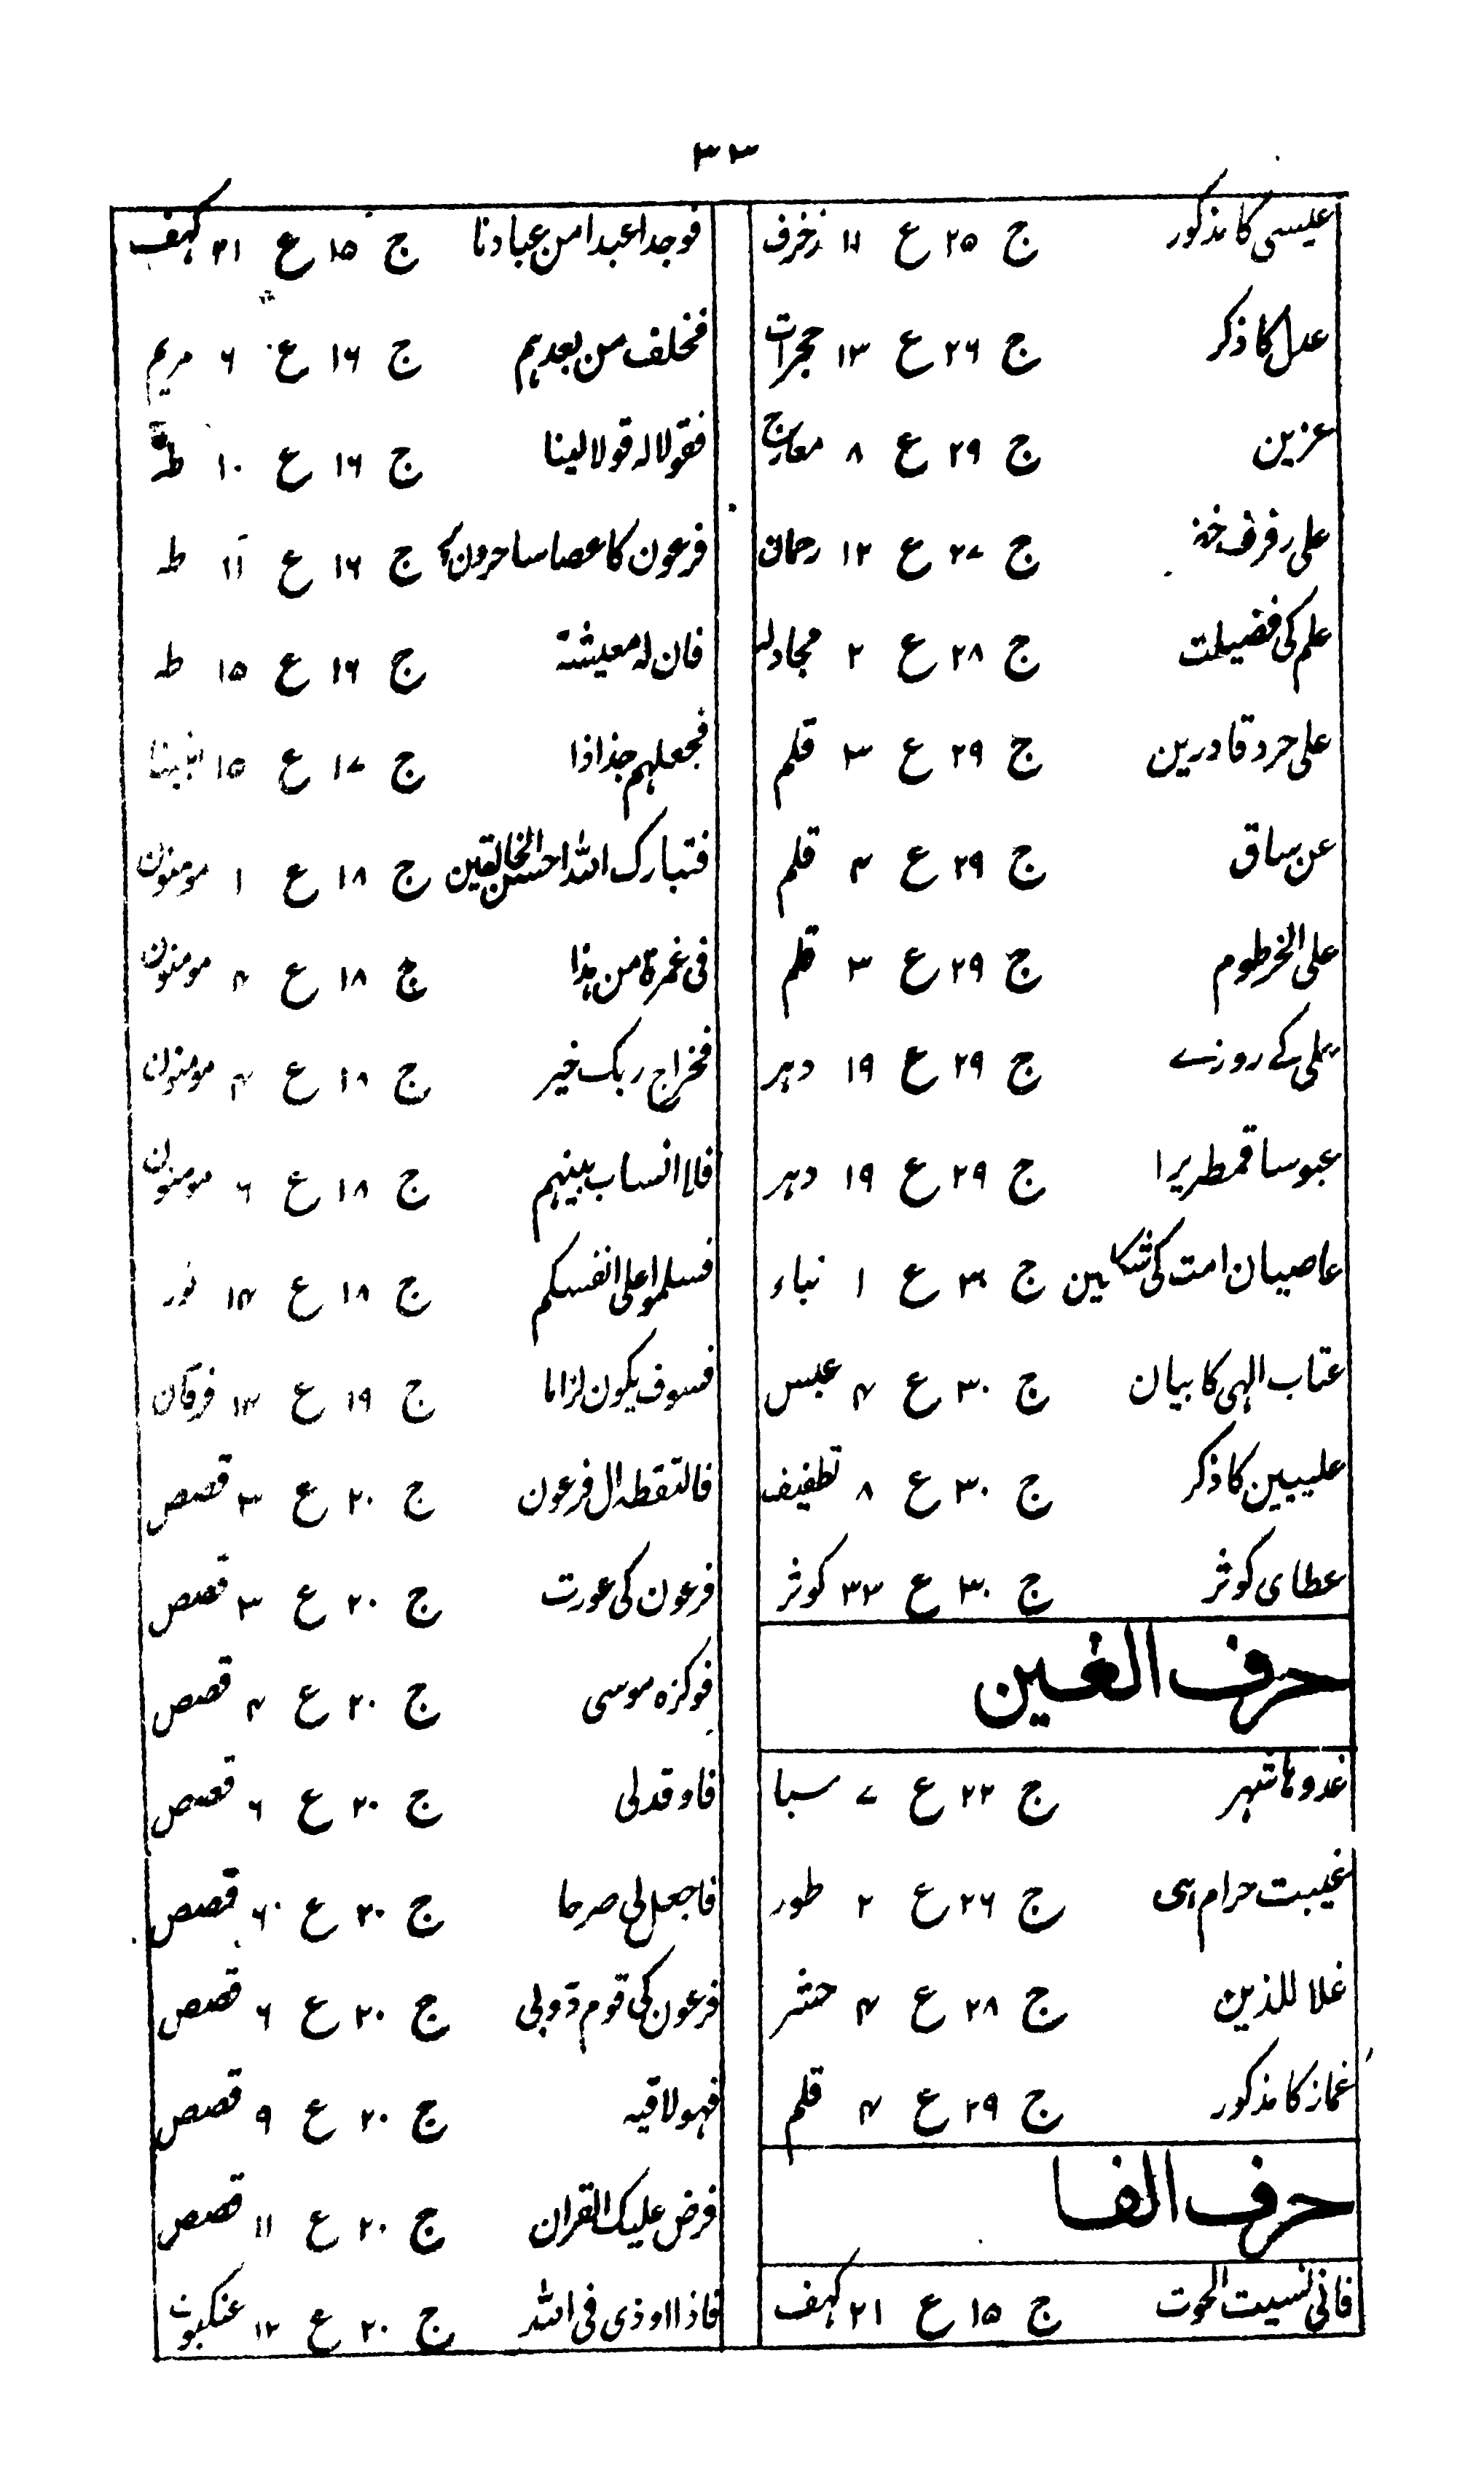 ۳۳
عیسی کا مذکور ج ۲۵ ع ۱۱ زخرف
عدل کا ذکر ج ۲۶ ع ۱۳ حجرات
عزین ج ۲۹ ع ۸ معارج
علی رفرف خضر ج ۲۷ ع ۱۳ رحمان
علم کی فضیلت ج ۲۸ ع ۲ مجادلہ
علی حرد قادرین ج ۲۹ ع ۳ قلم
عن ساق ج ۲۹ ع ۴ قلم
علی الخرطوم ج ۲۹ ع ۳ قلم
علی کے روزے ج ۲۹ ع ۱۹ دہر
عبوسا قمطریرا ج ۲۹ ع ۱۹ دہر
عاصیان امت کی شکایین ج ۳۰ ع ۱ نباء
عتاب الہی کا بیان ج ۳۰ ع ۴ عبس
علییین کا ذکر ج ۳۰ ع ۸ تطفیف
عطای کوثر ج ۳۰ ع ۳۳ کوثر
حرف الغین
غدوھا شہر ج ۲۲ ع ۷ سبا
غیبت حرام ہی ج ۲۶ ع ۲ طور
غلا للذین ج ۲۸ ع ۴ حشر
غماز کا مذکور ج ۲۹ ع ۴ قلم
حرف الفا
فانی نسیت الحوت ج ۱۵ ع ۲۱ کہف
فوجدا عبدا من عبادنا ج ۱۵ ع ۲۱ کہف
فخلف من بعدہم ج ۱۶ ع ۶ مریم
فقولا لہ قولا لینا ج ۱۶ ع ۱۰ طہ
فرعون کا عصا ساحرون ج ۱۶ ع ۱۱ طہ
فان لہ معیشتہ ج ۱۶ ع ۱۵ طہ
فجعلہم جذاذا ج ۱۷ ع ۱۵
فتبارک اللہ احسن الخالقین ج ۱۸ ع ۱ مومنون
فی غمرۃ من ہذا ج ۱۸ ع ۴ مومنون
فخراج ربک خیر ج ۱۸ ع ۴ مومنون
فلا انساب بینہم ج ۱۸ ع ۶ مومنون
فسلموا علی انفسکم ج ۱۸ ع ۱۴ نور
فسوف یکون لزاما ج ۱۹ ع ۱۴ فرقان
فالتقطہ ال فرعون ج ۲۰ ع ۳ قصص
فرعون کی عورت ج ۲۰ ع ۳ قصص
فوکزہ موسی ج ۲۰ ع ۴ قصص
فاوقد لی ج ۲۰ ع ۶ قصص
فاجعل لی صرحا ج ۲۰ ع ۶ قصص
فرعون کی قوم ڈوبی ج ۲۰ ع ۶ قصص
فہو لاقیہ ج ۲۰ ع ۹ قصص
فرض علیک القران ج ۲۰ ع ۱۱ قصص
فاذا اوذی فی اللہ ج ۲۰ ع ۱۳ عنکبوت